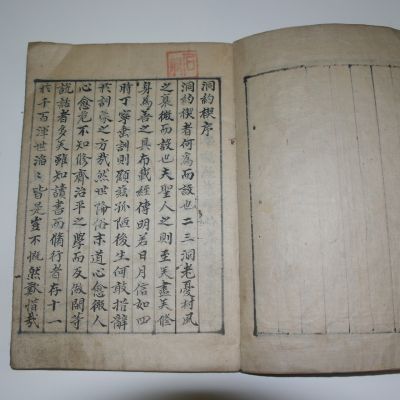 洞約稧序
洞約稧者何爲而設也二三洞老憂村風
之衰微而設也夫聖人之則至矣盡矣修
身爲善之具布載經傳明若日月信如四
時丁寧垂訓則顧玆孤陋後生何敢措辭
於訓蒙之方哉然世偷俗末道心愈微人
心愈危不知修齊治平之學而反做閑等
說話者多矣雖知讀書而循行者存十一
於千百渾世滔滔皆是豈不慨然歎惜哉